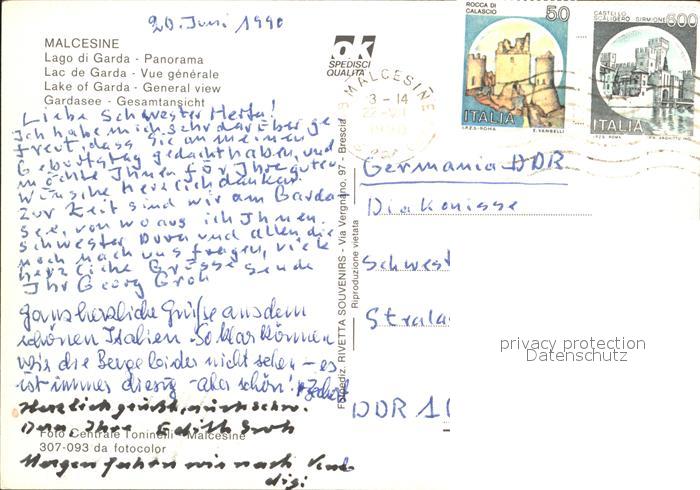 20. Juni 1990
MALCESINE
Lago di Garda - Panorama
Lac de Garda - Vue générale
Lake of Garda - General view
Gardasee - Gesamtansicht
ok
SPEDISCI
QUALITÀ
ROCCA DI
CALASCIO
50
ITALIA
I.P.Z.S.-ROMA
E. VANGELLI
CASTELLO
SCALIGERO SIRMIONE
600
ITALIA
I.P.Z.S.-ROMA
MALCESINE
3-14
Liebe Schwester Herta!
Ich habe mich sehr darüber ge
freut, dass Sie an meinen
Geburtstag gedacht haben, und
möchte Ihnen für Ihre guten
Wünsche herzlich danken.
Zur Zeit sind wir am Garda
See, von wo aus ich Ihnen.
Schwester Dora und allen, die
noch nach uns fragen, viele
herzliche Grüsse sende
Ihr Georg Groh
ganz herzliche Grüße aus dem
schönen Italien. So klar können
wir die Berge leider nicht sehen - es
ist immer diesig - aber schön!
Herzlich grüßt, auch Schw.
Dora, Ihre Edith Groh
Foto Centrale Toninelli - Malcesine
307-093 da fotocolor
Morgen fahren wir nach Vene
dig!
Spediz. RIVETTA SOUVENIRS - Via Vergnano, 97 - Brescia
Riproduzione vietata
Germania DDR
Diakonisse
Schwest
Stralas
DDR
privacy protection
Datenschutz